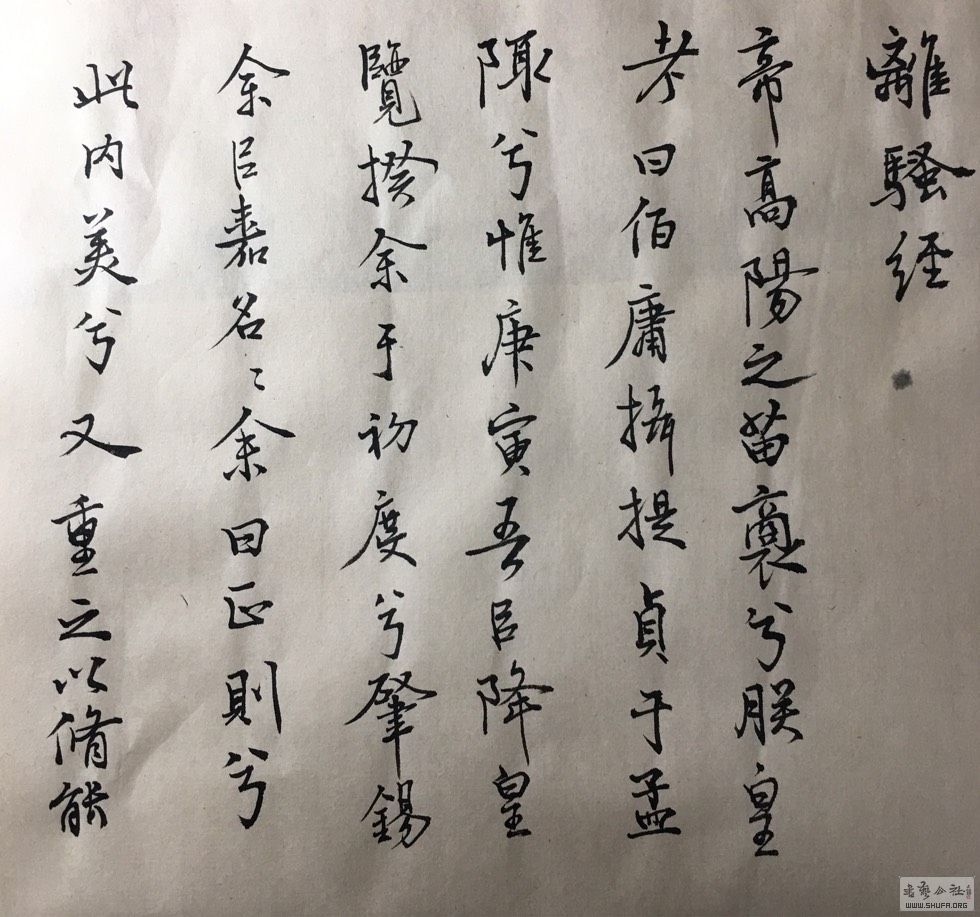 離騷經
帝高陽之苗裔兮朕皇
考曰伯庸攝提貞于孟
陬兮惟庚寅吾㠯降皇
覽揆余于初度兮肇錫
余㠯嘉名〻余曰正則兮
此内美兮又重之以脩能
書藝公社
WWW.SHUFA.ORG